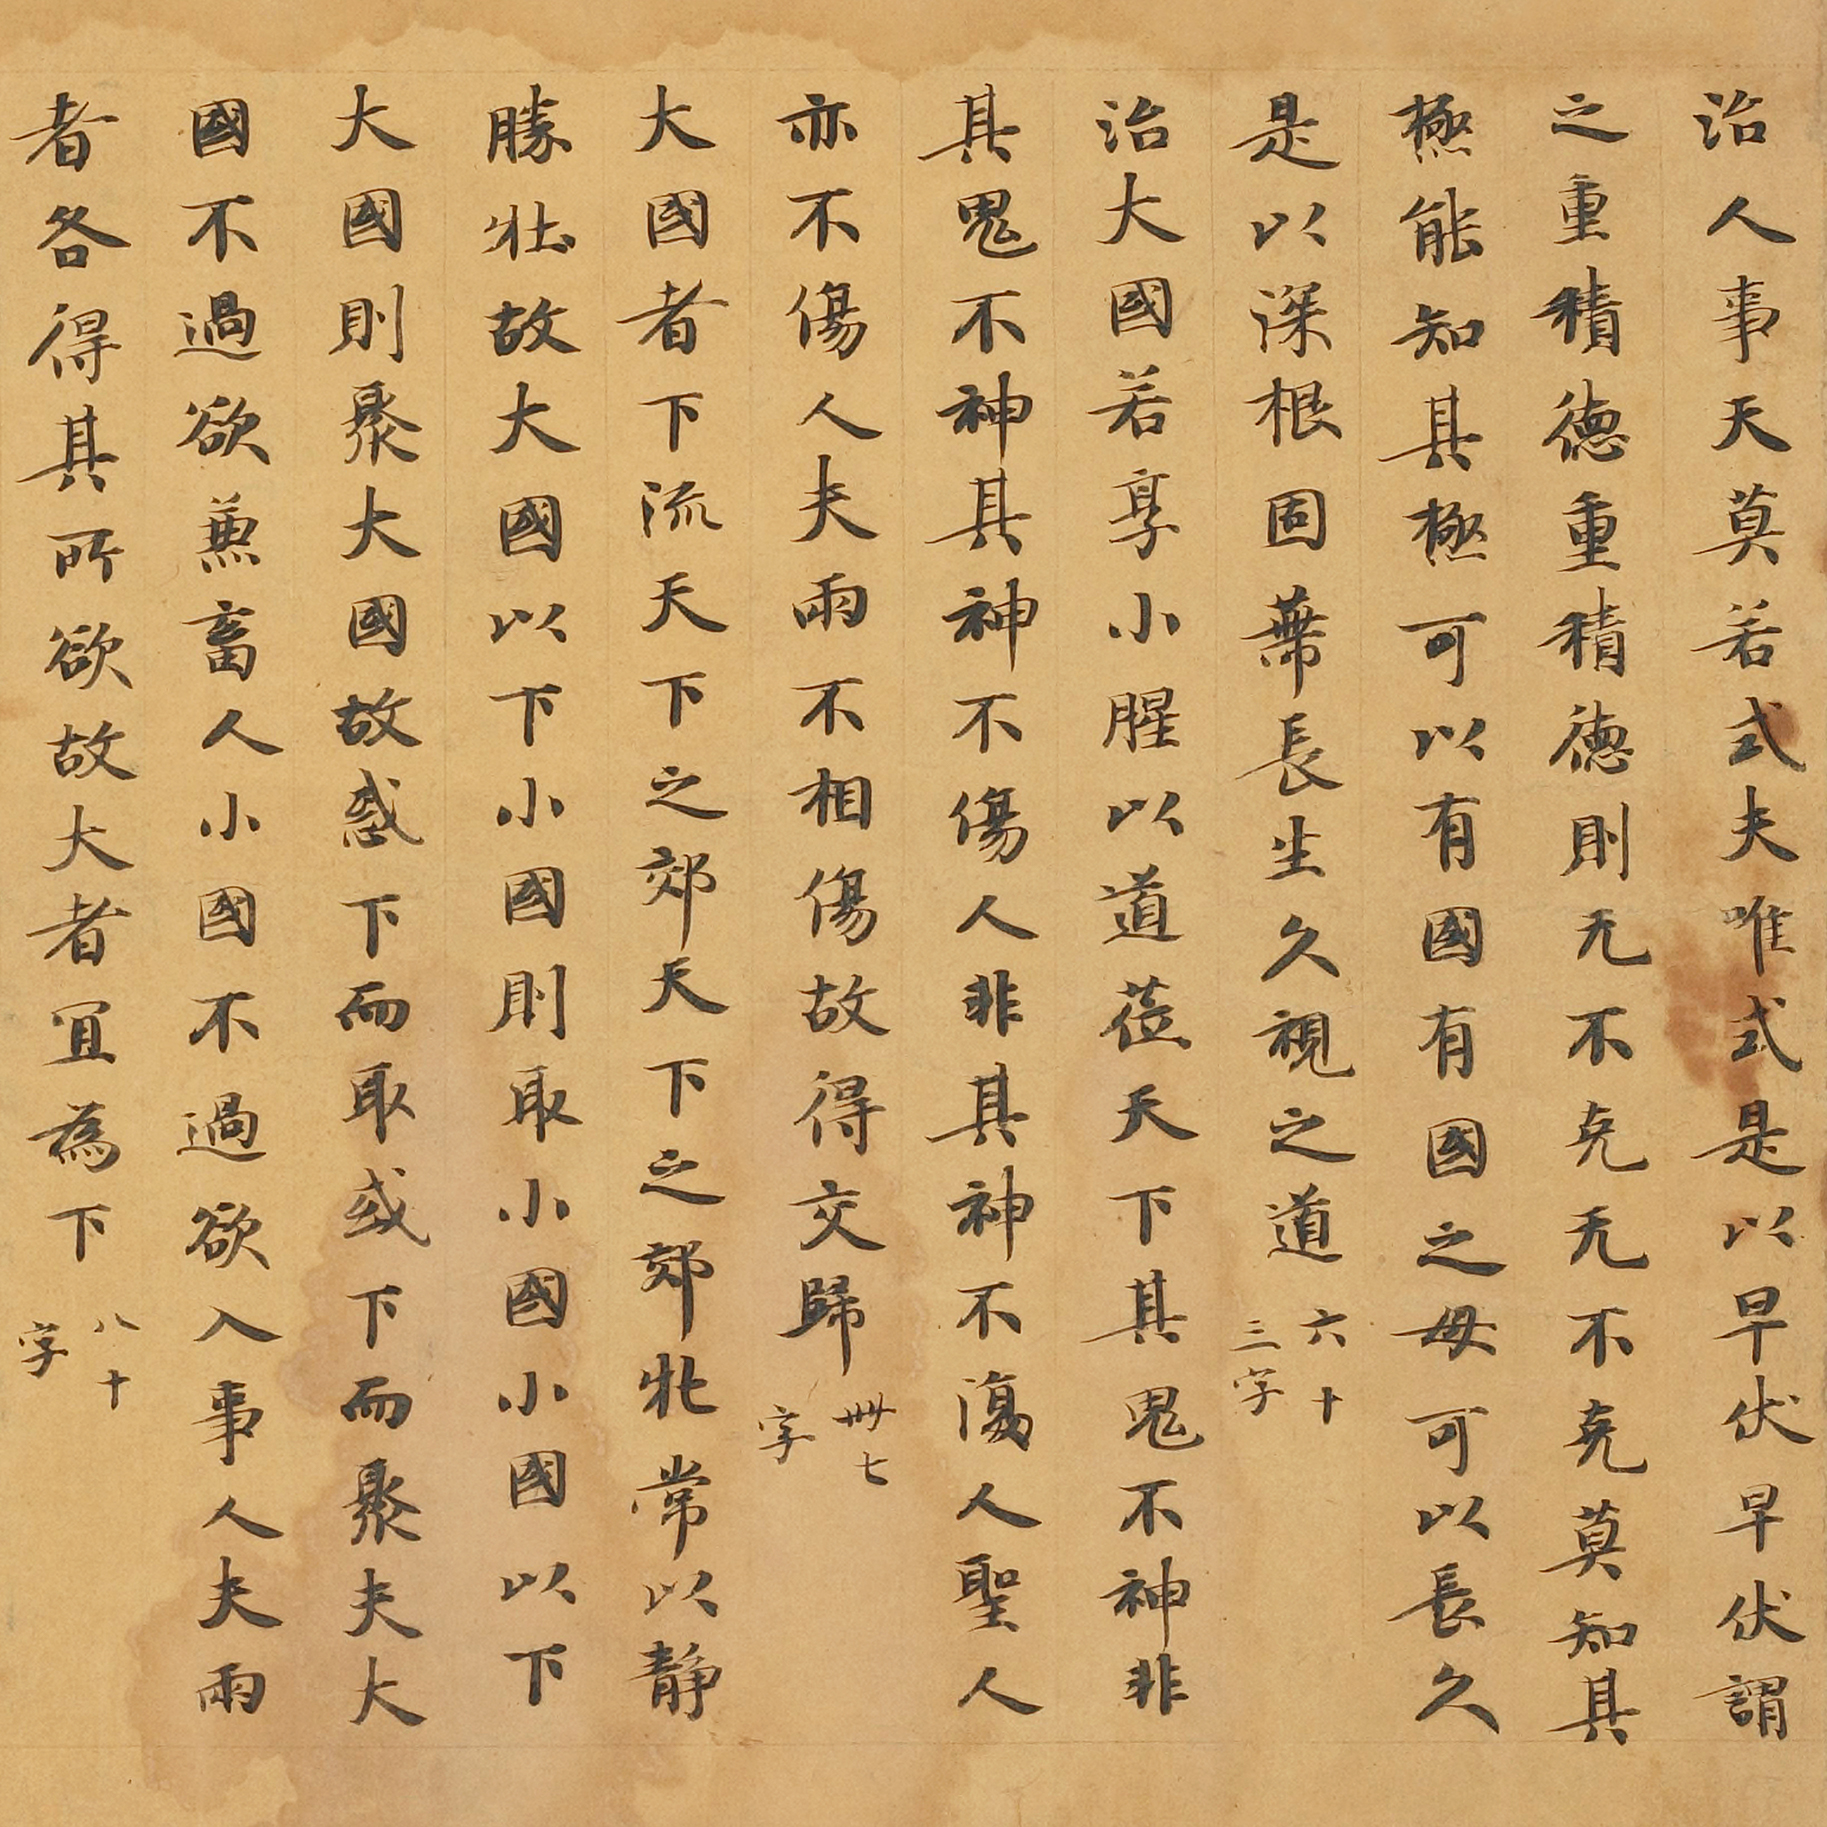 治人事天莫若式夫唯式是以早伏早伏謂
之重積德重積德則无不克无不克莫知其
極能知其極可以有國有國之母可以長久
是以深根固蔕長生久視之道六十三字
治大國若享小腥以道莅天下其鬼不神非
其鬼不神其神不傷人非其神不傷人聖人
亦不傷人夫兩不相傷故得交歸卌七字
大國者下流天下之郊天下之郊牝常以靜
勝牡故大國以下小國則取小國小國以下
大國則聚大國故或下而取或下而聚夫大
國不過欲兼畜人小國不過欲入事人夫兩
者各得其所欲故大者宜為下八十字